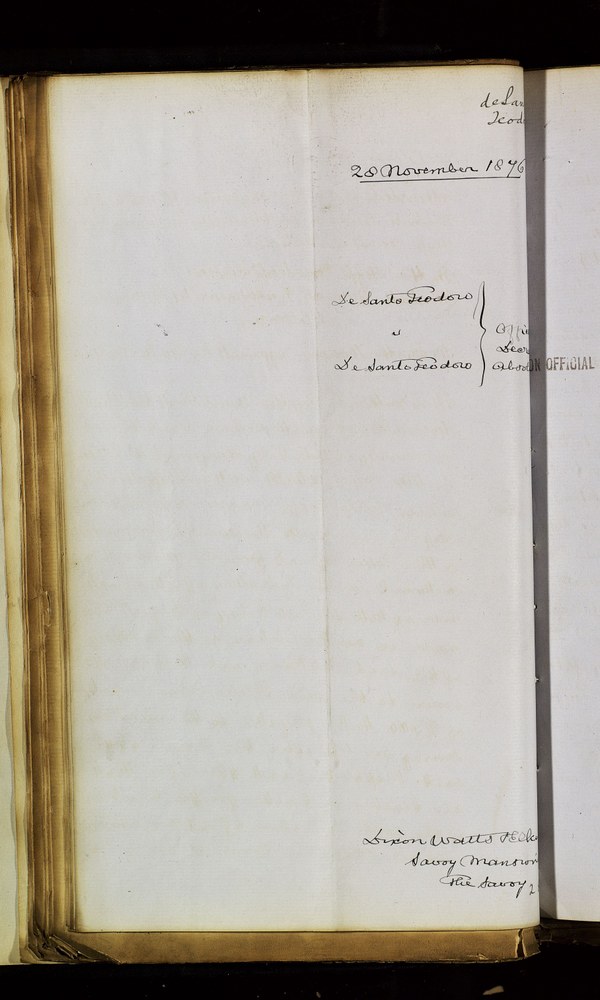 de San
Teod
28 November 1876
De Santo Teodoro
v
De Santo Teodoro
Offi
Decr
Abso
N OFFICIAL
Dixon Watts &
Savoy Mansion
The Savoy 2